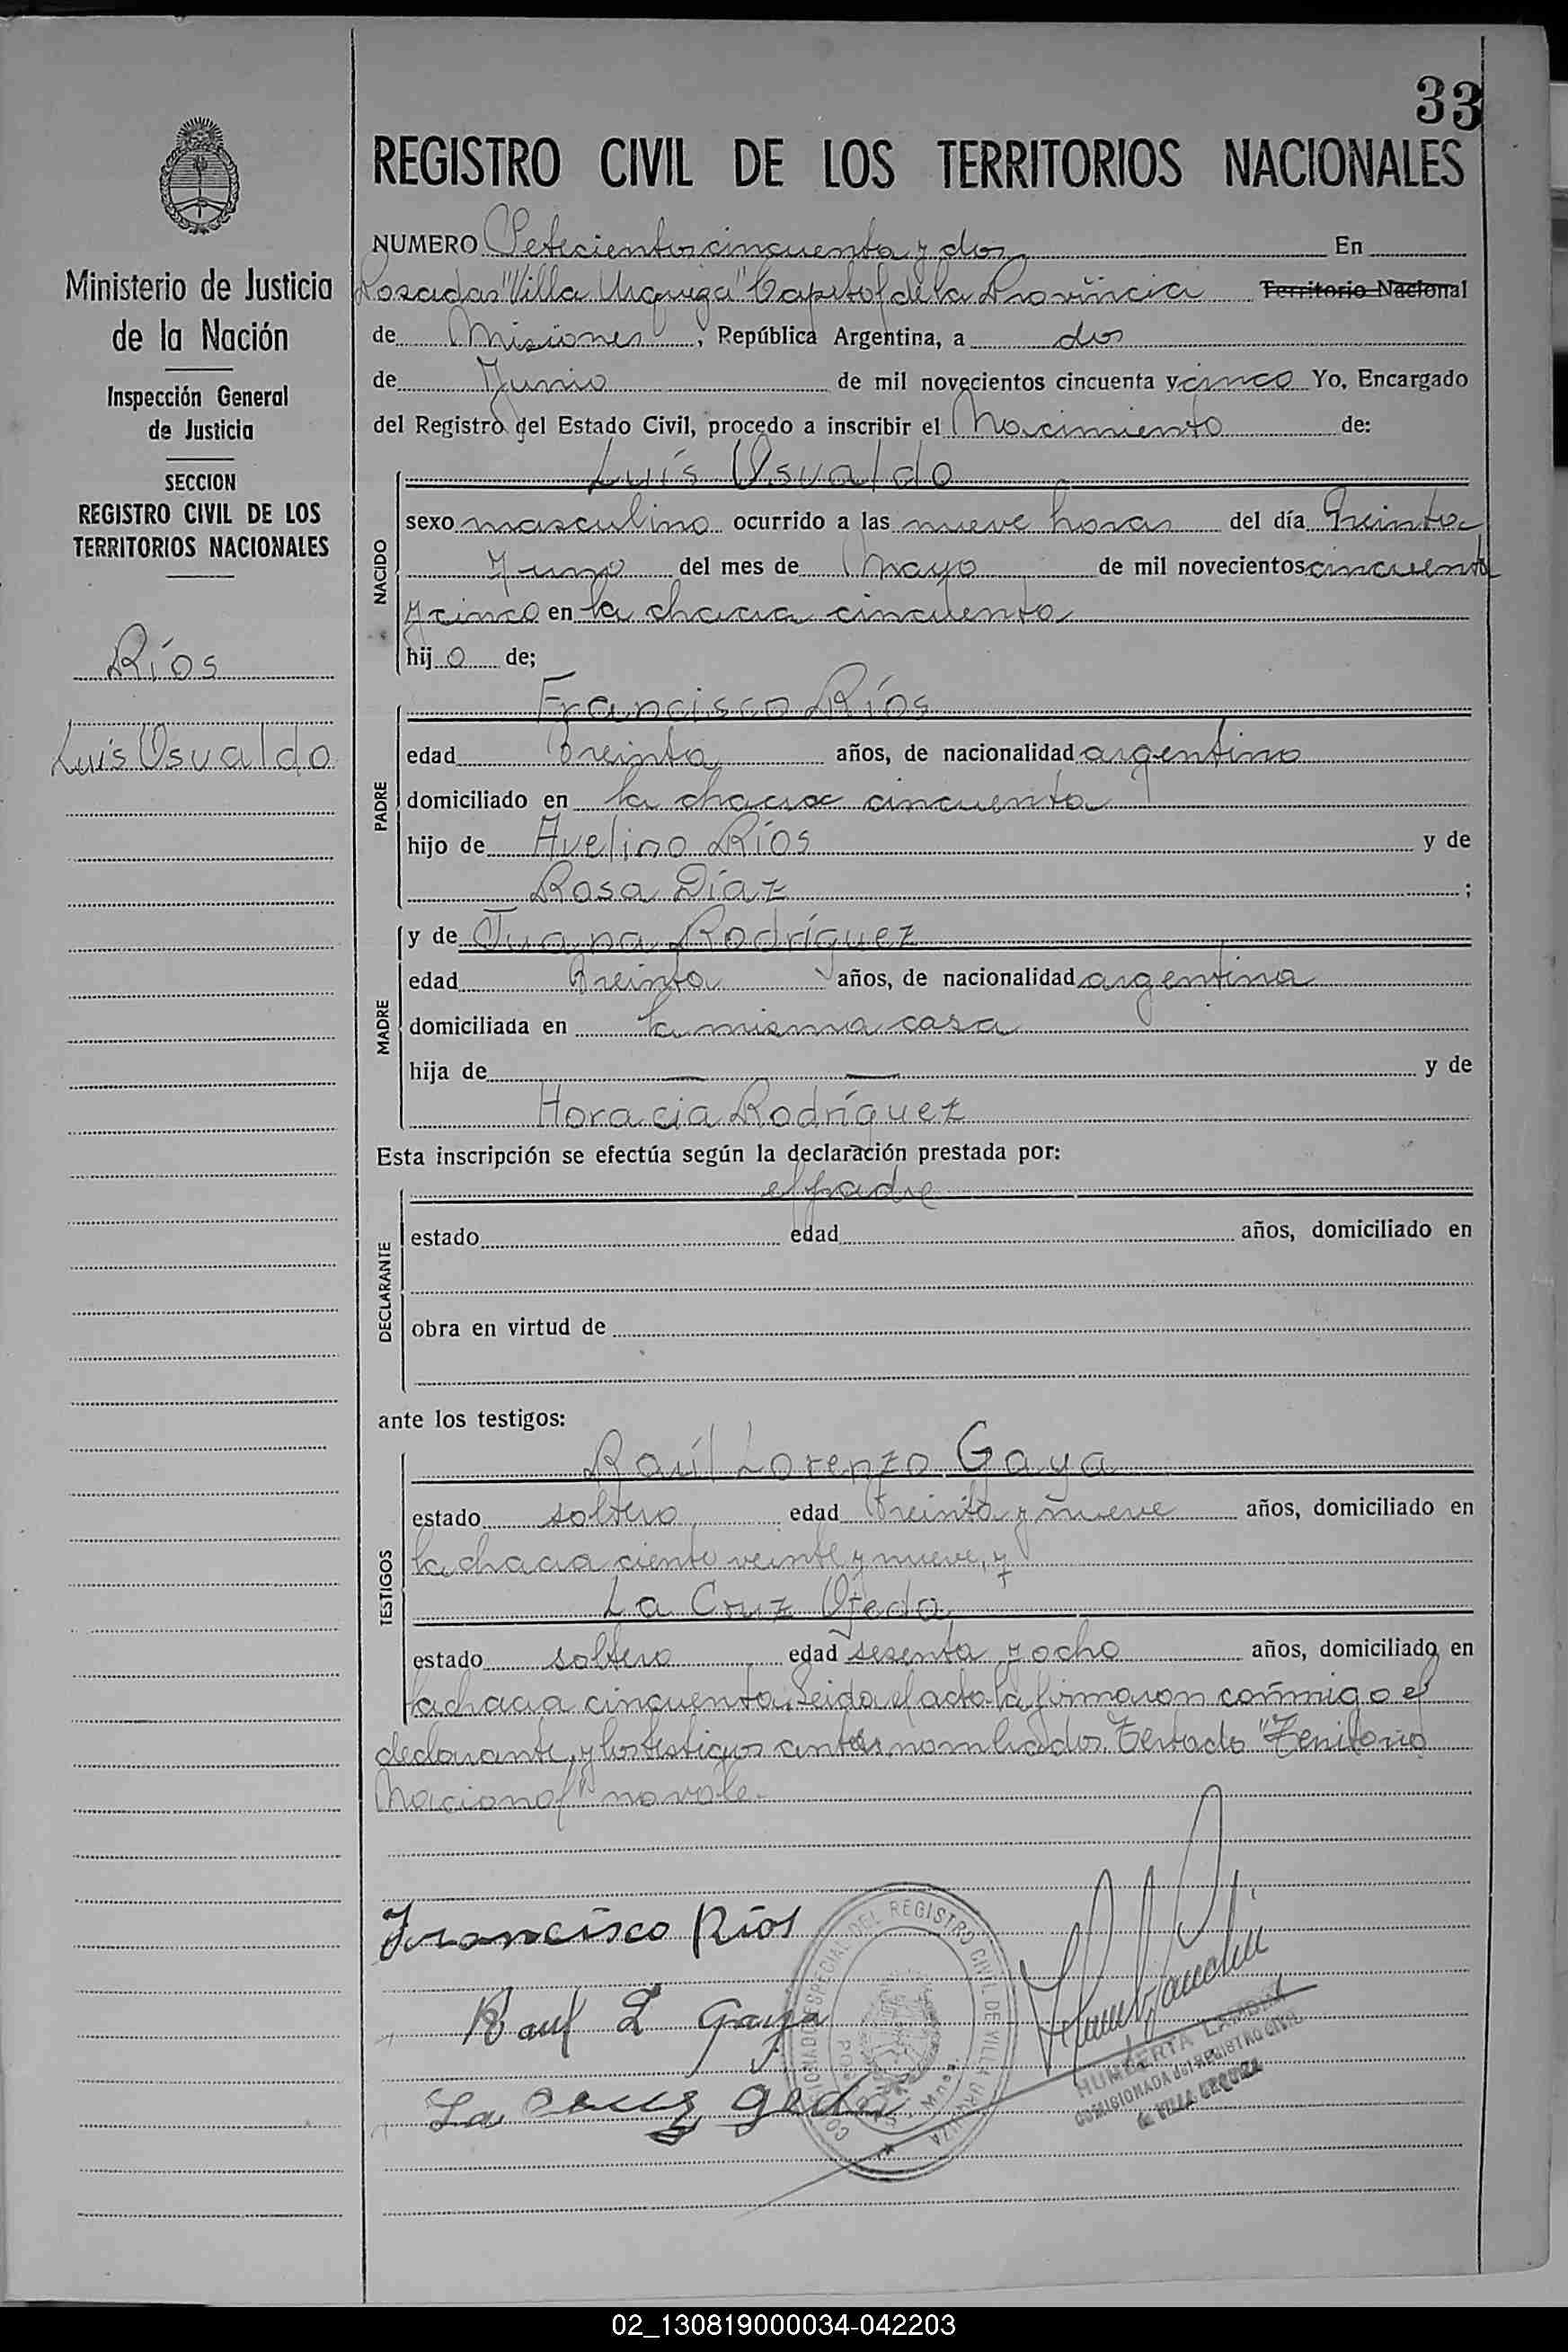 33
REGISTRO CIVIL DE LOS TERRITORIOS NACIONALES
Ministerio de Justicia
de la Nación
Inspección General
de Justicia
SECCION
REGISTRO CIVIL DE LOS
TERRITORIOS NACIONALES
Ríos
Luis Osvaldo
NUMERO Setecientos cincuenta y dos En
Posadas "Villa Urquiza" Capital de la Provincia Territorio Nacional
de Misiones, República Argentina, a dos
de Junio de mil novecientos cincuenta y cinco Yo, Encargado
del Registro del Estado Civil, procedo a inscribir el Nacimiento de:
NACIDO
Luis Osvaldo
sexo masculino ocurrido a las nueve horas del día Treinta
y uno del mes de Mayo de mil novecientos cincuenta
y cinco en la chacra cincuenta
hijo de;
PADRE
Francisco Ríos
edad treinta años, de nacionalidad argentino
domiciliado en la chacra cincuenta
hijo de Avelino Ríos y de
Rosa Díaz ;
MADRE
y de Juana Rodríguez
edad treinta años, de nacionalidad argentina
domiciliada en la misma casa
hija de — — y de
Horacia Rodríguez
Esta inscripción se efectúa según la declaración prestada por:
DECLARANTE
el padre
estado edad años, domiciliado en
obra en virtud de
ante los testigos:
TESTIGOS
Raúl Lorenzo Gaya
estado soltero edad treinta y nueve años, domiciliado en
la chacra ciento veinte y nueve, y
La Cruz Ojeda
estado soltero edad sesenta y ocho años, domiciliado en
la chacra cincuenta. Leida el acta la firmaron conmigo el
declarante, y los testigos antes nombrados. Testado "Territorio
Nacional" no vale.
Francisco Ríos
Raul L Gaya
La Cruz Ojeda
COMISIONADO ESPECIAL DEL REGISTRO CIVIL DE VILLA URQUIZA
HUMBERTA
COMISIONADA del REGISTRO CIVIL
de VILLA URQUIZA
02_130819000034-042203